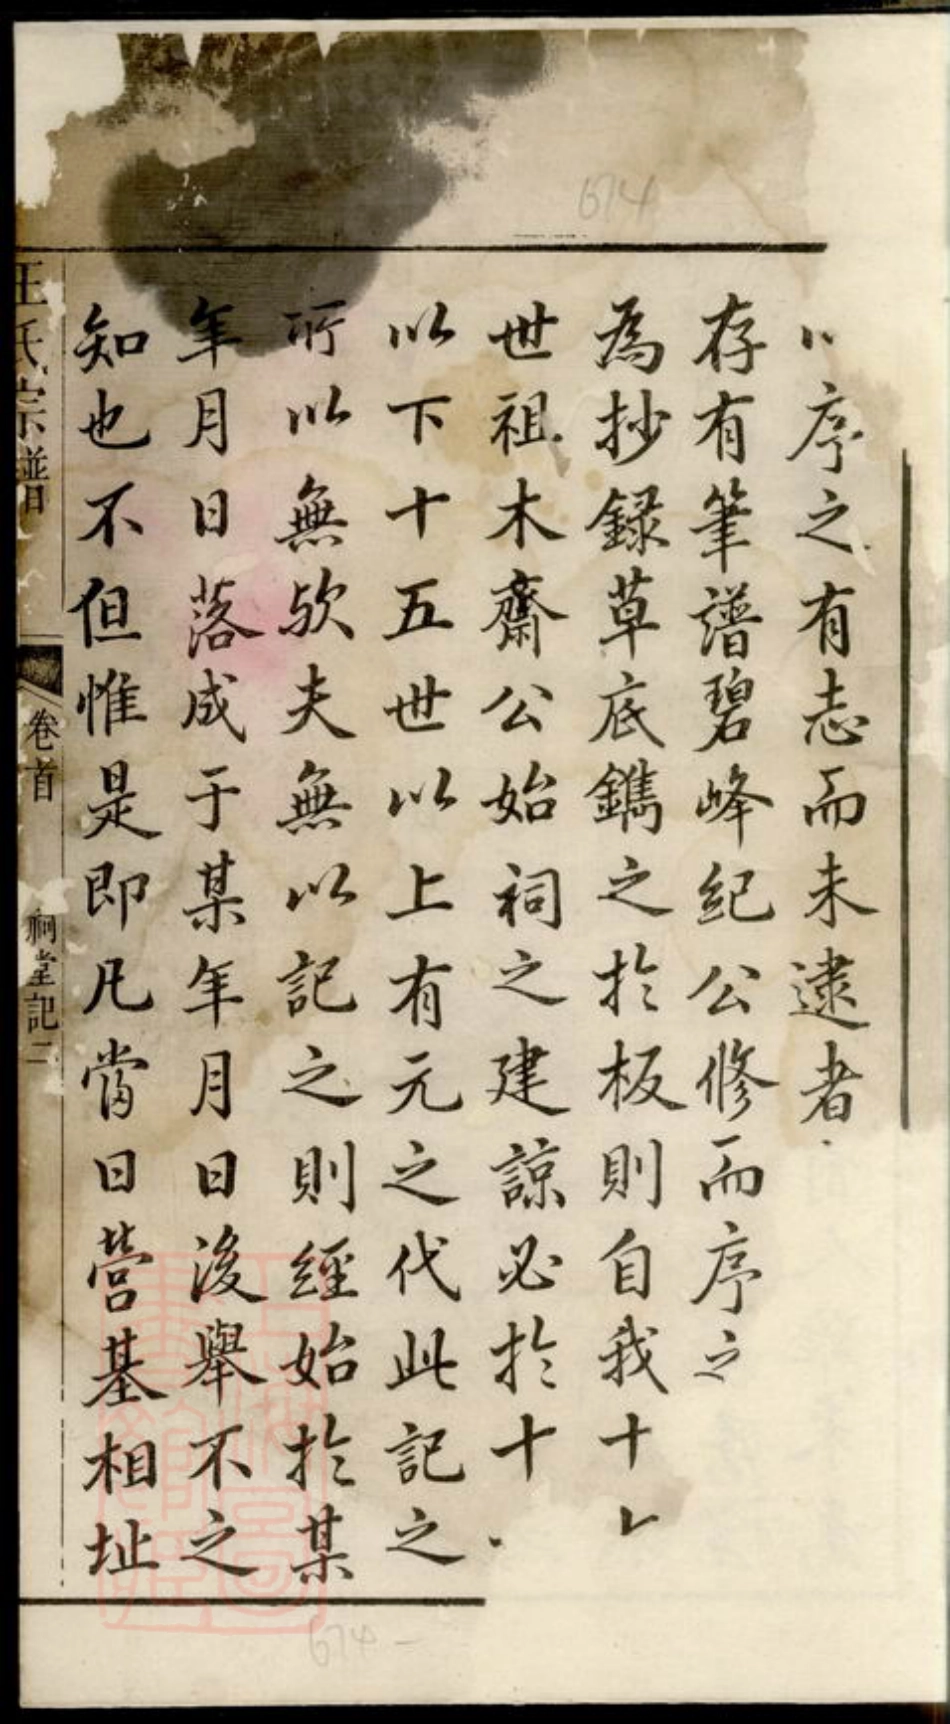 序之有志而未逮者
存有筆譜碧峰紀公修而序之
為抄録草底鐫之於板則自我十
世祖木齋公始祠之建諒必於十
以下十五世以上有元之代此記之
所以無欤夫無以記之則經始於某
年月日落成于某年月日後舉不之
知也不但惟是即凡當日营基相址
王氏宗譜
卷首
祠堂記二
674
674